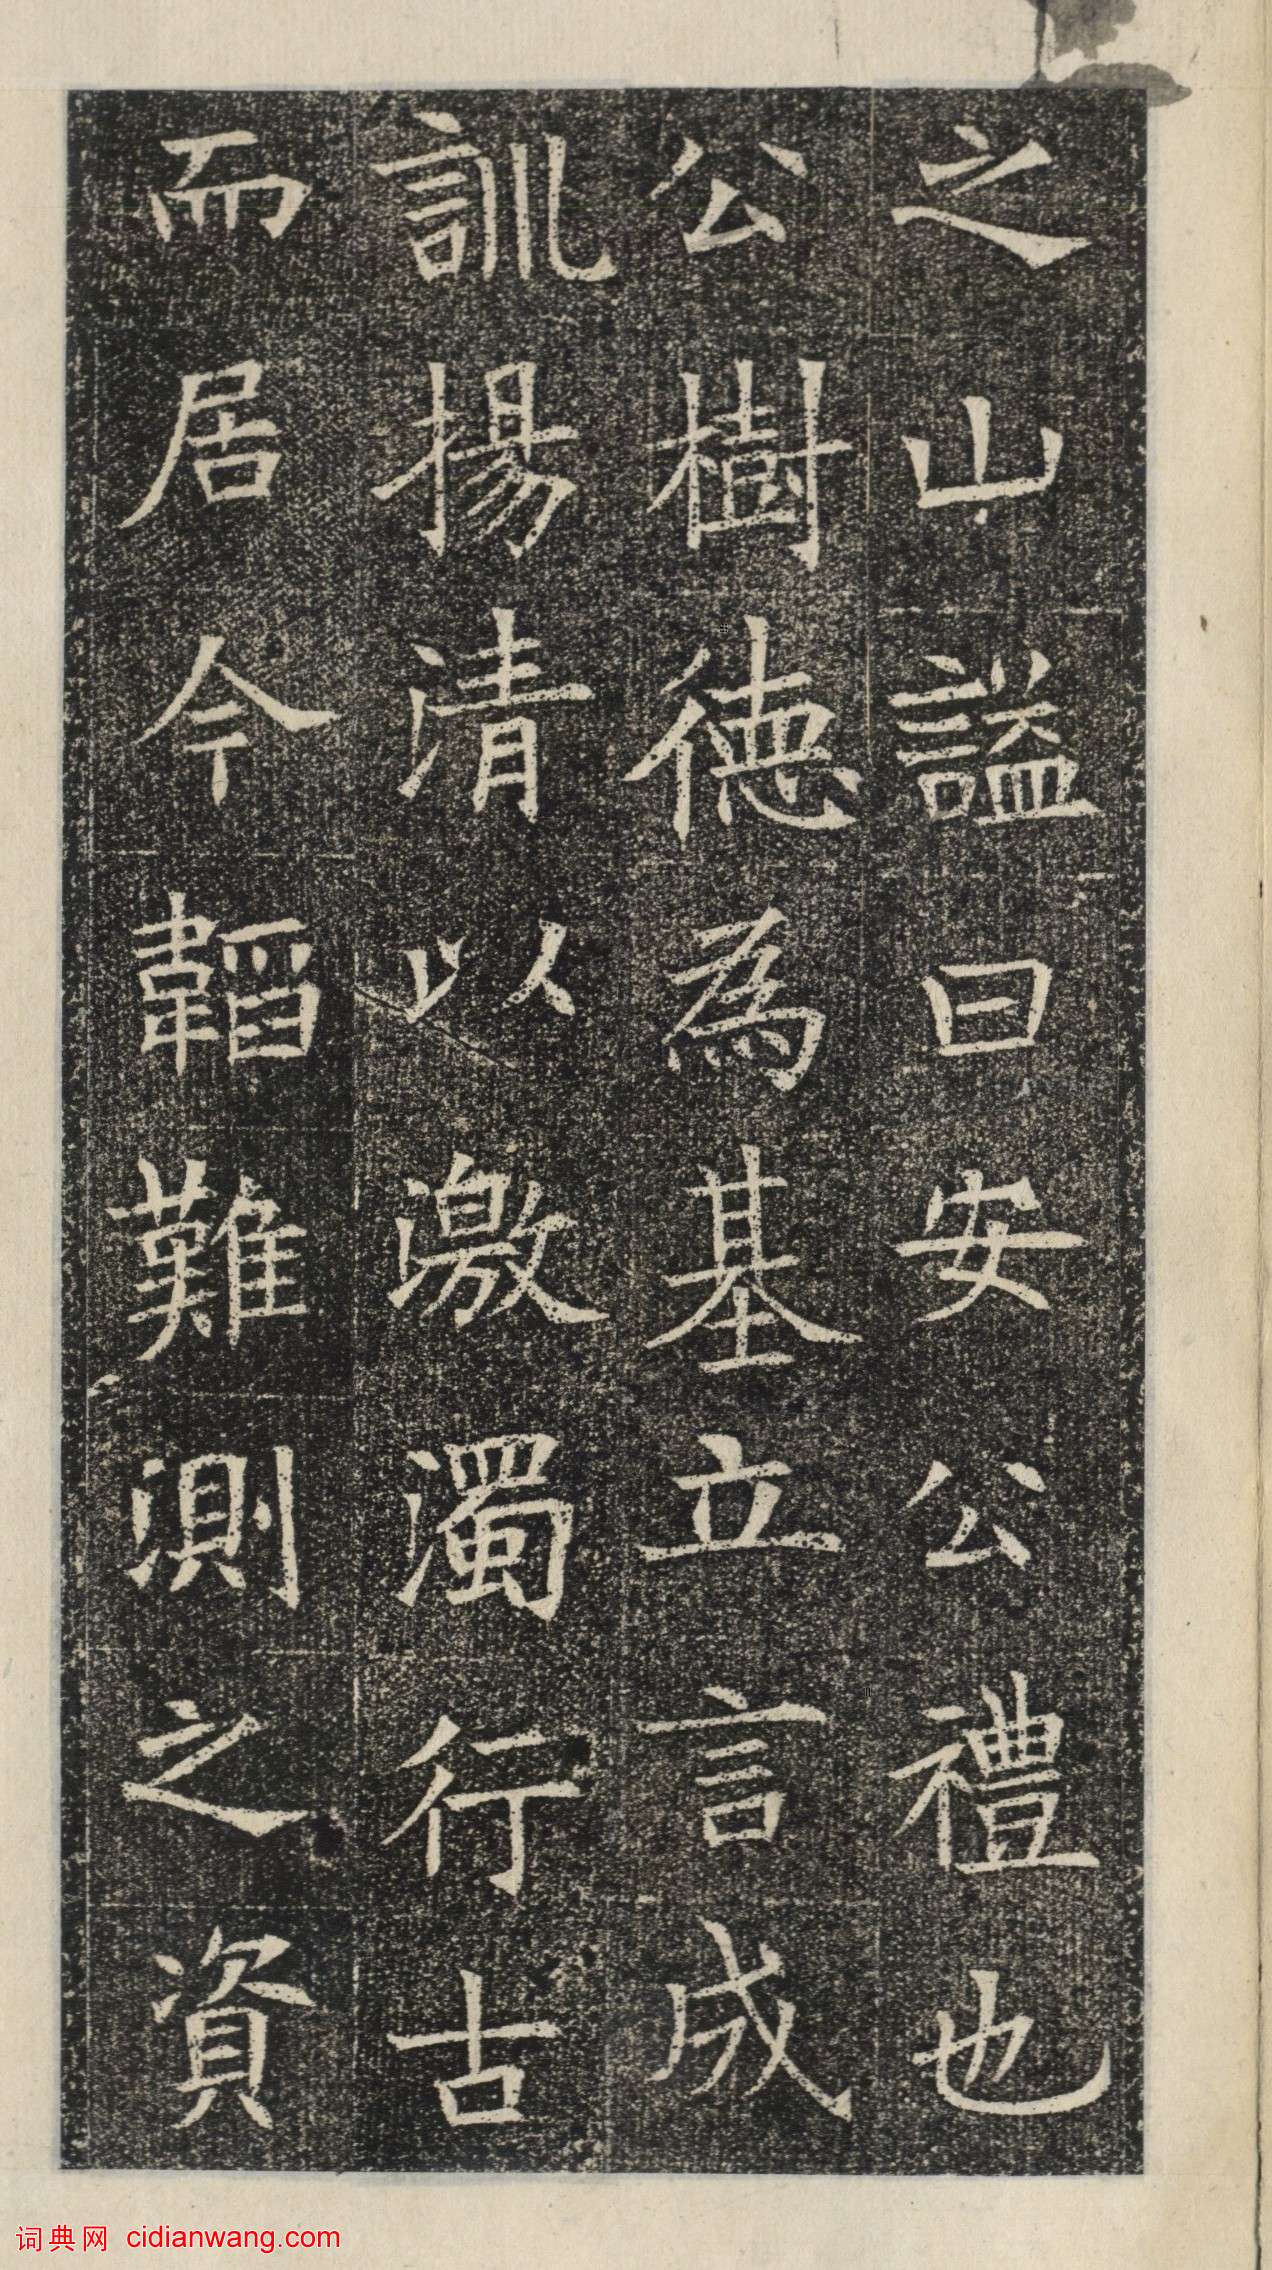 之山謚曰安公禮也
公樹德為基立言成
訓揚清以激濁行古
而居今韜難測之資
词典网 cidianwang.com